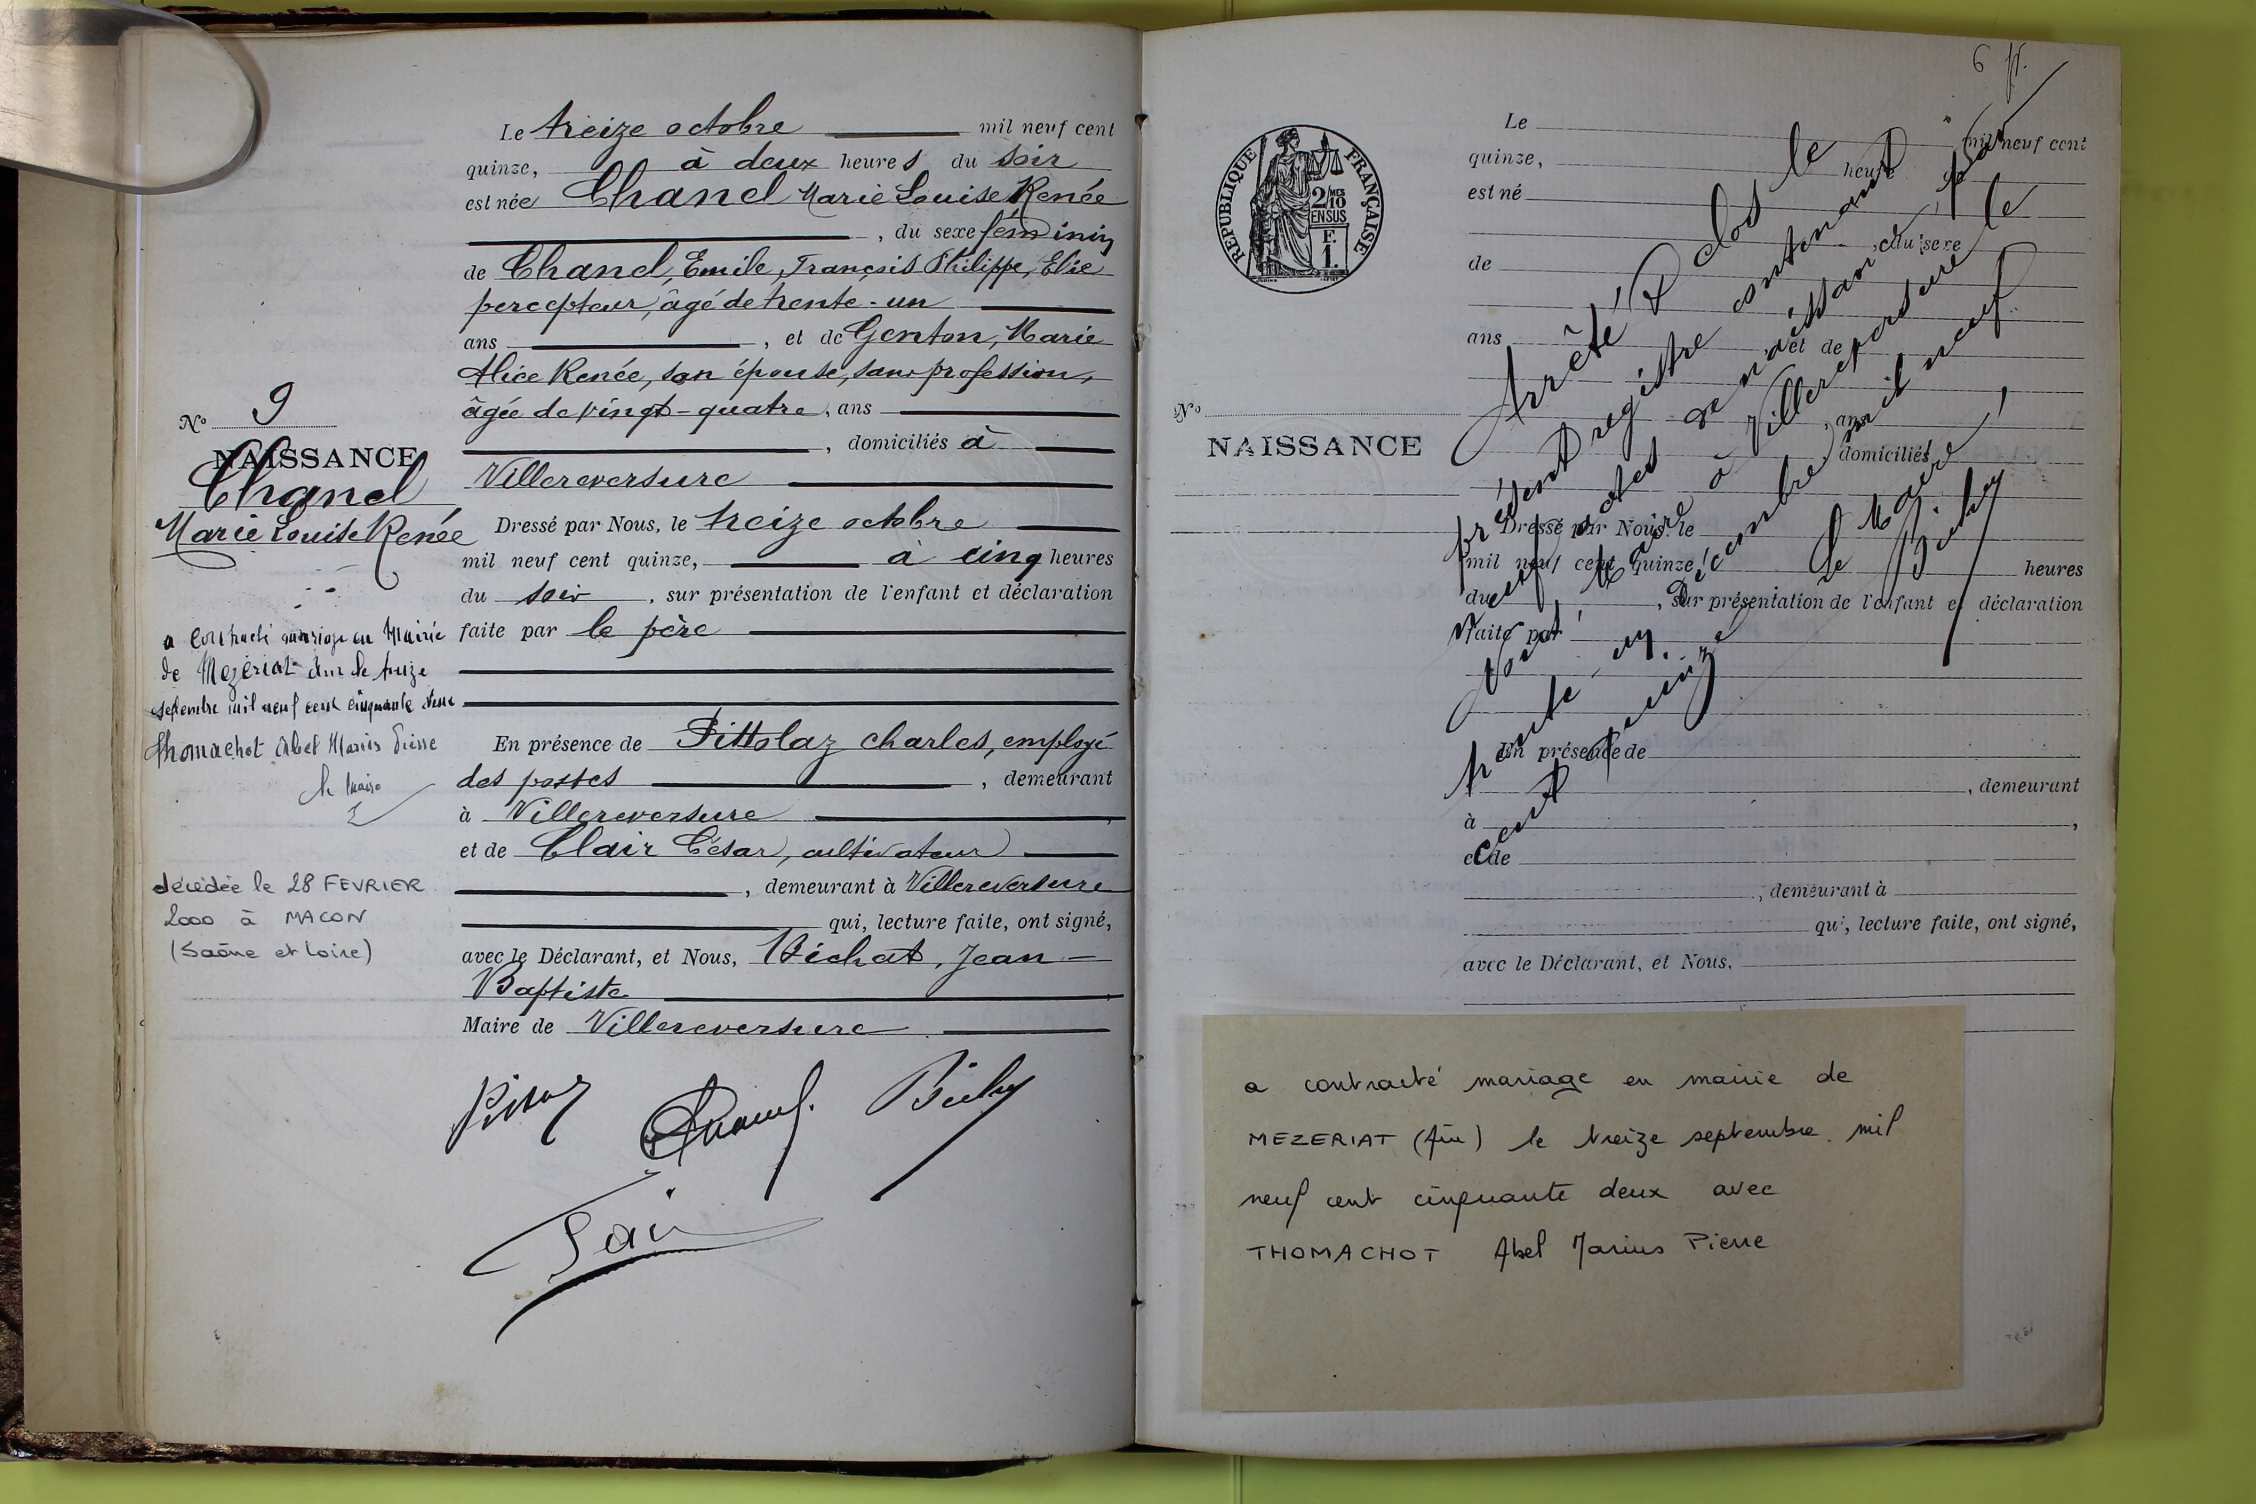 Le treize octobre mil neuf cent
quinze, à deux heures du soir
est née Chanel Marie Louise Renée
, du sexe féminin
de Chanel, Emile, François Philippe, Elie
percepteur, âgé de trente-un
ans , et de Genton, Marie
Alice Renée, son épouse, sans profession,
âgée de vingt-quatre, ans
, domiciliés à
Villereversure
Dressé par Nous, le treize octobre
mil neuf cent quinze, à cinq heures
du soir , sur présentation de l'enfant et déclaration
faite par le père
En présence de Pittolaz charles, employé
des postes , demeurant
à Villereversure ,
et de Clair César, cultivateur
, demeurant à Villereversure
qui, lecture faite, ont signé,
avec le Déclarant, et Nous, Béchat, Jean-
Baptiste
Maire de Villereversure
No 9
NAISSANCE
Chanel
Marie Louise Renée
a contracté mariage en Mairie
de Mezériat le treize
septembre mil neuf cent cinquante deux
Thomachot Abel Marius Pierre
le Maire
décédée le 28 FEVRIER
2000 à MACON
(Saône et Loire)
6
RÉPUBLIQUE FRANÇAISE
2/10
EN SUS
F.
1.
Le mil neuf cent
quinze, heure du
est né
, du sexe
de
ans , et de
, ans
, domiciliés
No
NAISSANCE
Dressé par Nous, le
mil neuf cent quinze, heures
du , sur présentation de l'enfant et déclaration
faite par
En présence de
, demeurant
à ,
et de
, demeurant à
qui, lecture faite, ont signé,
avec le Déclarant, et Nous,
Arrêté & clos le
présent registre contenant
neuf actes de naissance, par
Nous, Maire à Villereversure le
trente-un Décembre mil neuf
cent quinze.
Le Maire,
a contracté mariage en mairie de
MEZERIAT (Ain) le treize septembre mil
neuf cent cinquante deux avec
THOMACHOT Abel Marius Pierre